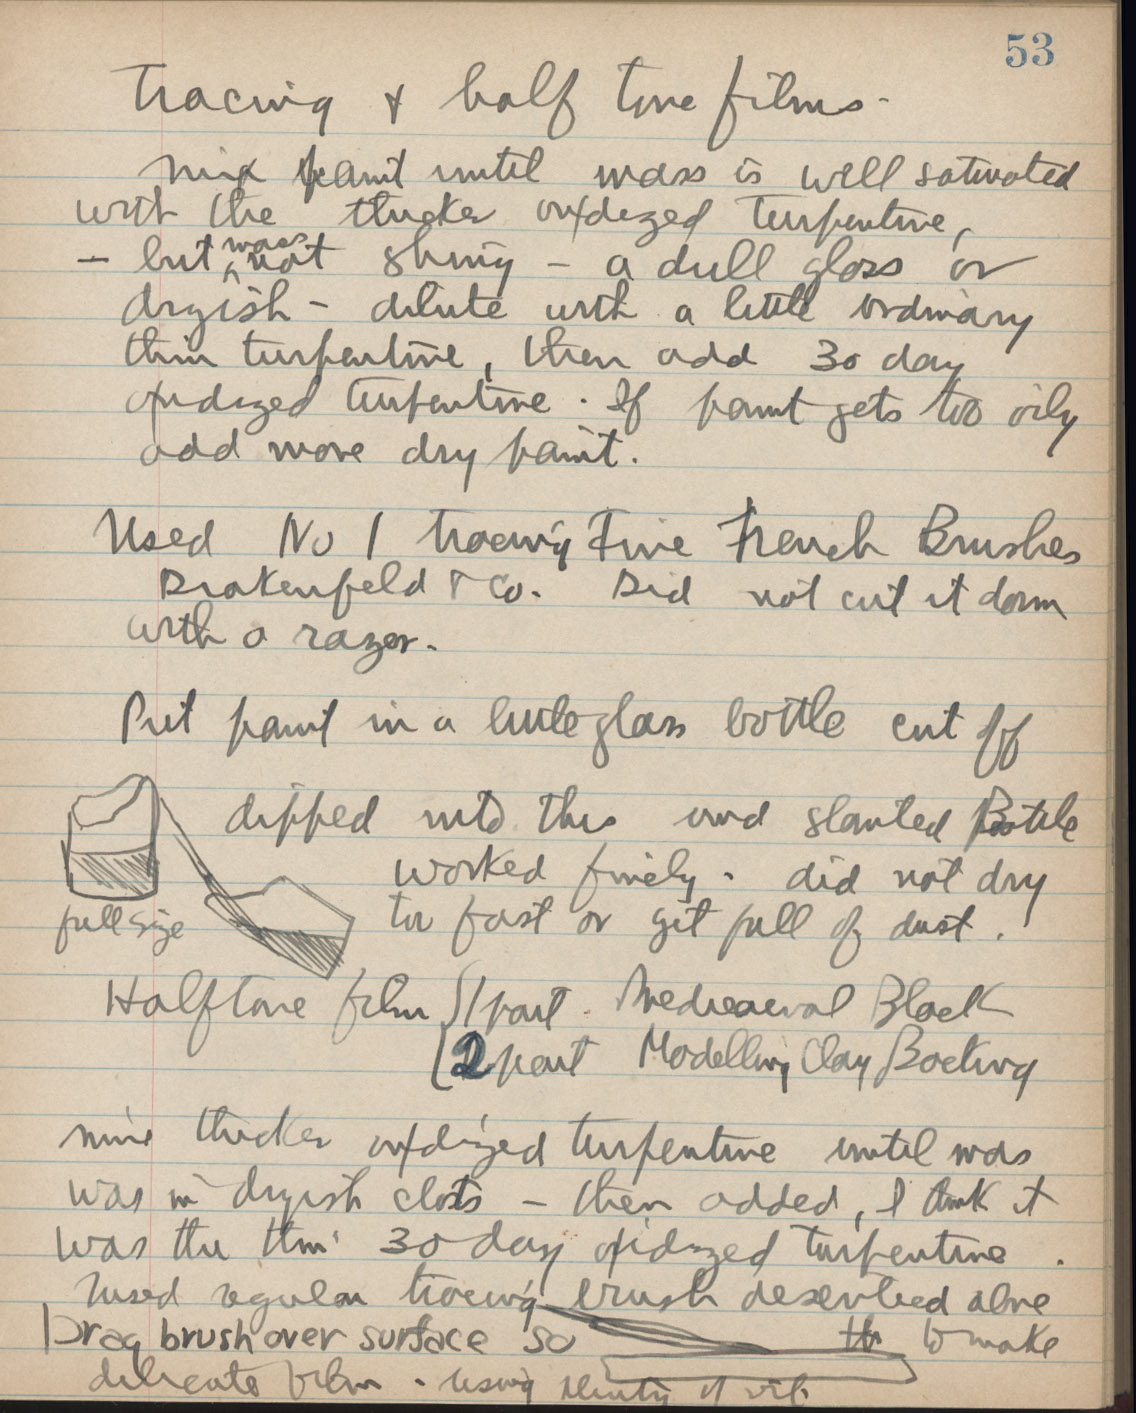 53
Tracing & half tone films.
Mix paint until mass is well saturated
with the thicker oxidized turpentine,
- but mass not shiny - a dull gloss or
dryish - dilute with a little ordinary
thin turpentine, then add 30 day
oxidized turpentine. If paint gets too oily
add more dry paint.
Used No 1 tracing Fine French Brushes
Drakenfeld & Co. Did not cut it down
with a razor.
Put paint in a little glass bottle cut off
dipped into this and slanted Bottle
worked finely. did not dry
too fast or get full of dust.
full size
Halftone film 1 part Mediaeval Black
2 part Modelling Clay Backing
thicker oxidized turpentine until mass
was in dryish clots - then added, I think it
was the thin 30 day oxidized turpentine.
used regular tracing brush described above
Drag brush over surface so to make
delicate film - using plenty of